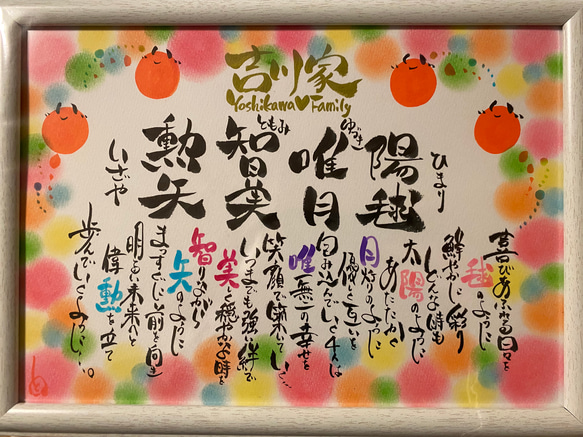 吉川家
Yoshikawa♥Family
ひまり
陽毬
ゆづき
唯月
ともみ
智美
勲矢
いざや
喜びあふれる日々を
毬のように
鮮やかに彩り
どんな時も
太陽のように
あたたかく
月灯のように
優しく互いを
包みこんでいく
唯一無二の幸せを
笑顔で満たしていく…
いつまでも強い絆で
美しく穏やかな時を
智りながら
矢のように
まっすぐに前を向き
明るい未来へと
偉勲を立て
歩んでいくように…。